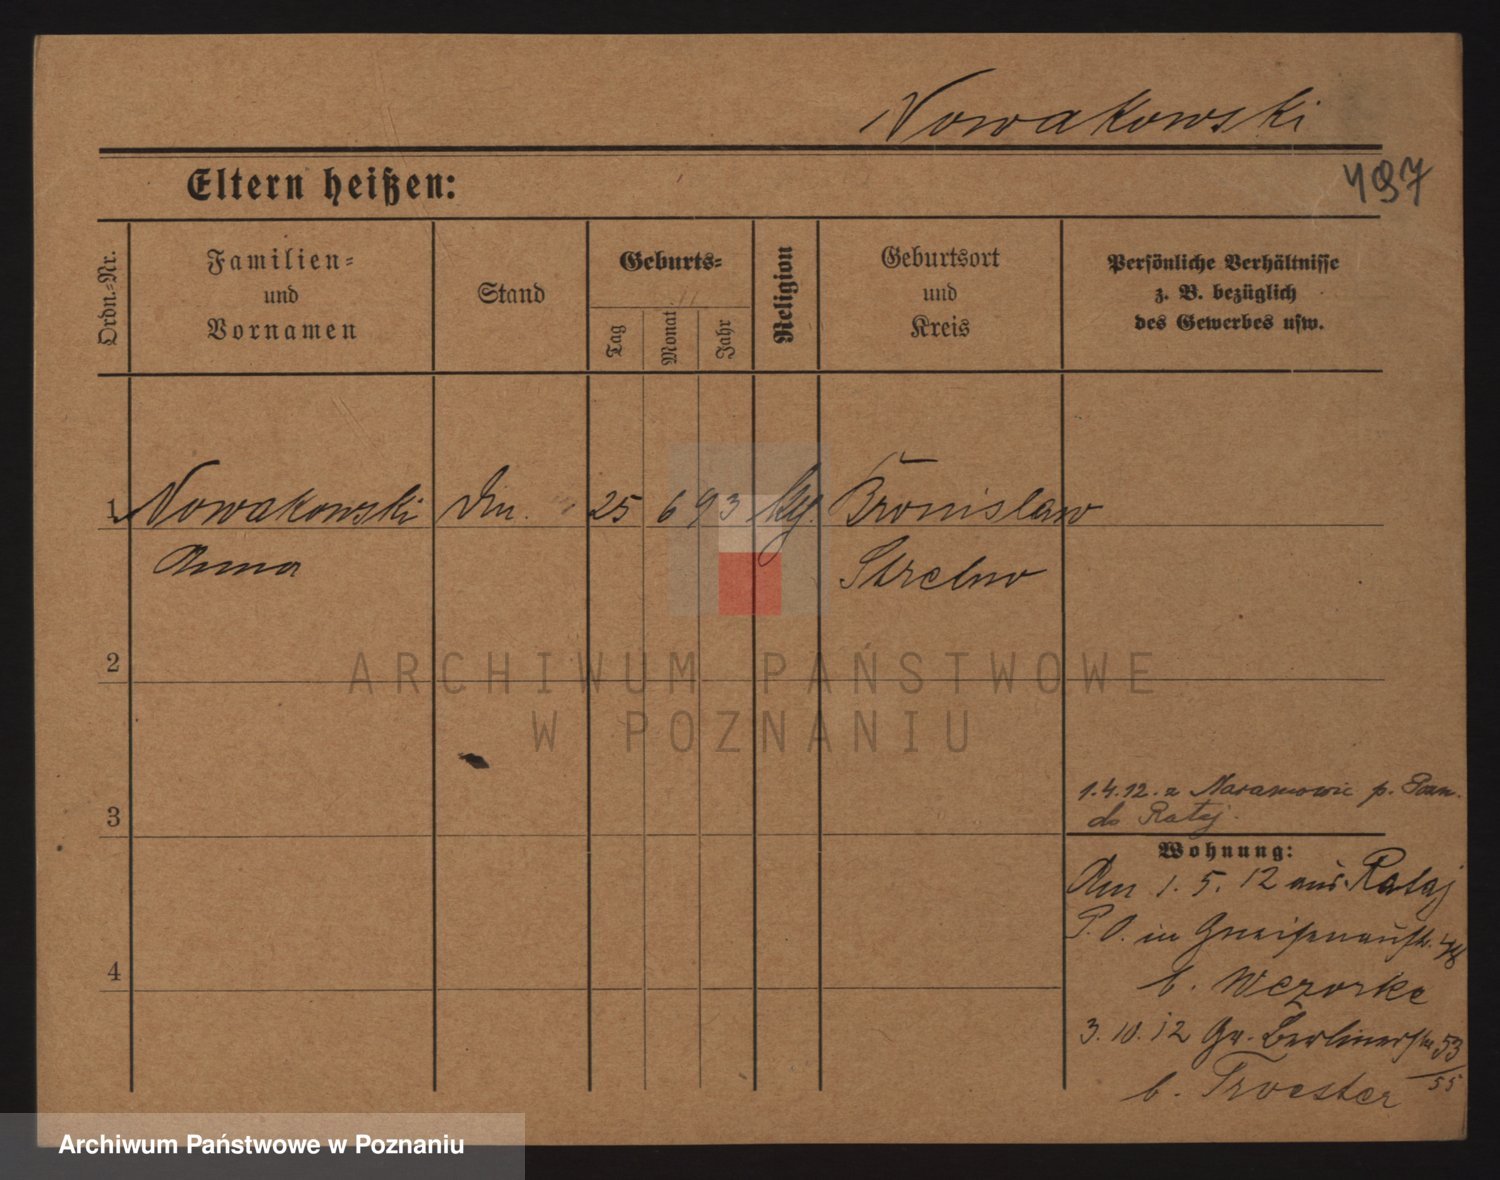 Nowakowski
197
Eltern heißen:
Ordn.-Nr.
Familien-
und
Vornamen
Stand
Geburts-
Tag
Monat
Jahr
Religion
Geburtsort
und
Kreis
Persönliche Verhältnisse
z. B. bezüglich
des Gewerbes usw.
1 Nowakowski 25 6 93 Bronislaw
Anna Strelno
ARCHIWUM PAŃSTWOWE
W POZNANIU
2
3
4
1.4.12. z Naramowic p. Pozn.
do Rataj.
Wohnung:
Am 1. 5. 12 aus Rataj
P. O. in Gneisenaustr.
b. Wezorke
3. 10. 12 Gr. Berlinerstr. 53/55
b. Troester
Archiwum Państwowe w Poznaniu